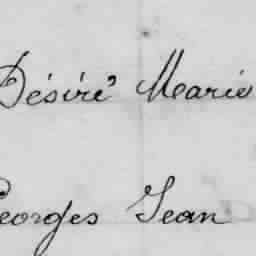 Désiré Marie
Georges Jean